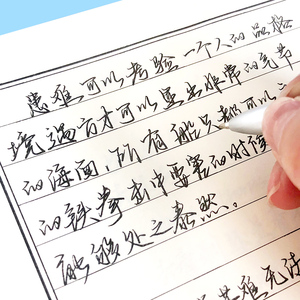 患难可以考验一个人的品格
境遇方才可以显出非常的气节
的海面，所有船只都可以
的铁拳击中要害的时候
能够处之泰然。
难无